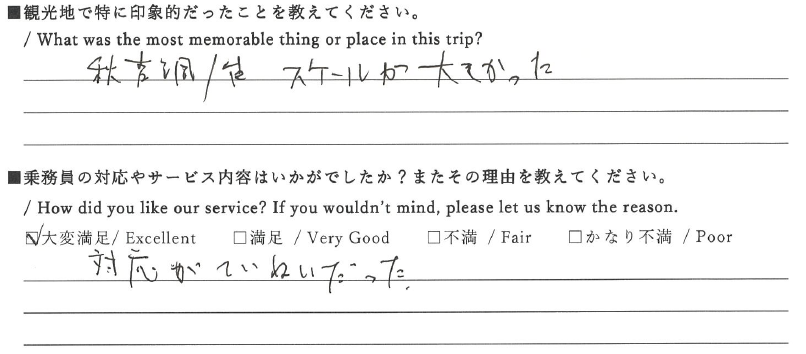 ■観光地で特に印象的だったことを教えてください。
/ What was the most memorable thing or place in this trip?
秋吉洞/ スケールが大きかった
■乗務員の対応やサービス内容はいかがでしたか？またその理由を教えてください。
/ How did you like our service? If you wouldn't mind, please let us know the reason.
☑大変満足/ Excellent □満足 / Very Good □不満 / Fair □かなり不満 / Poor
対応がていねいだった.